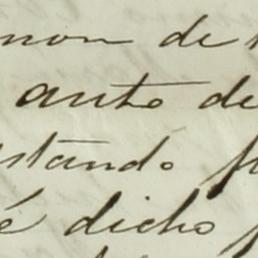 mon de
auto de
stando
é dicho